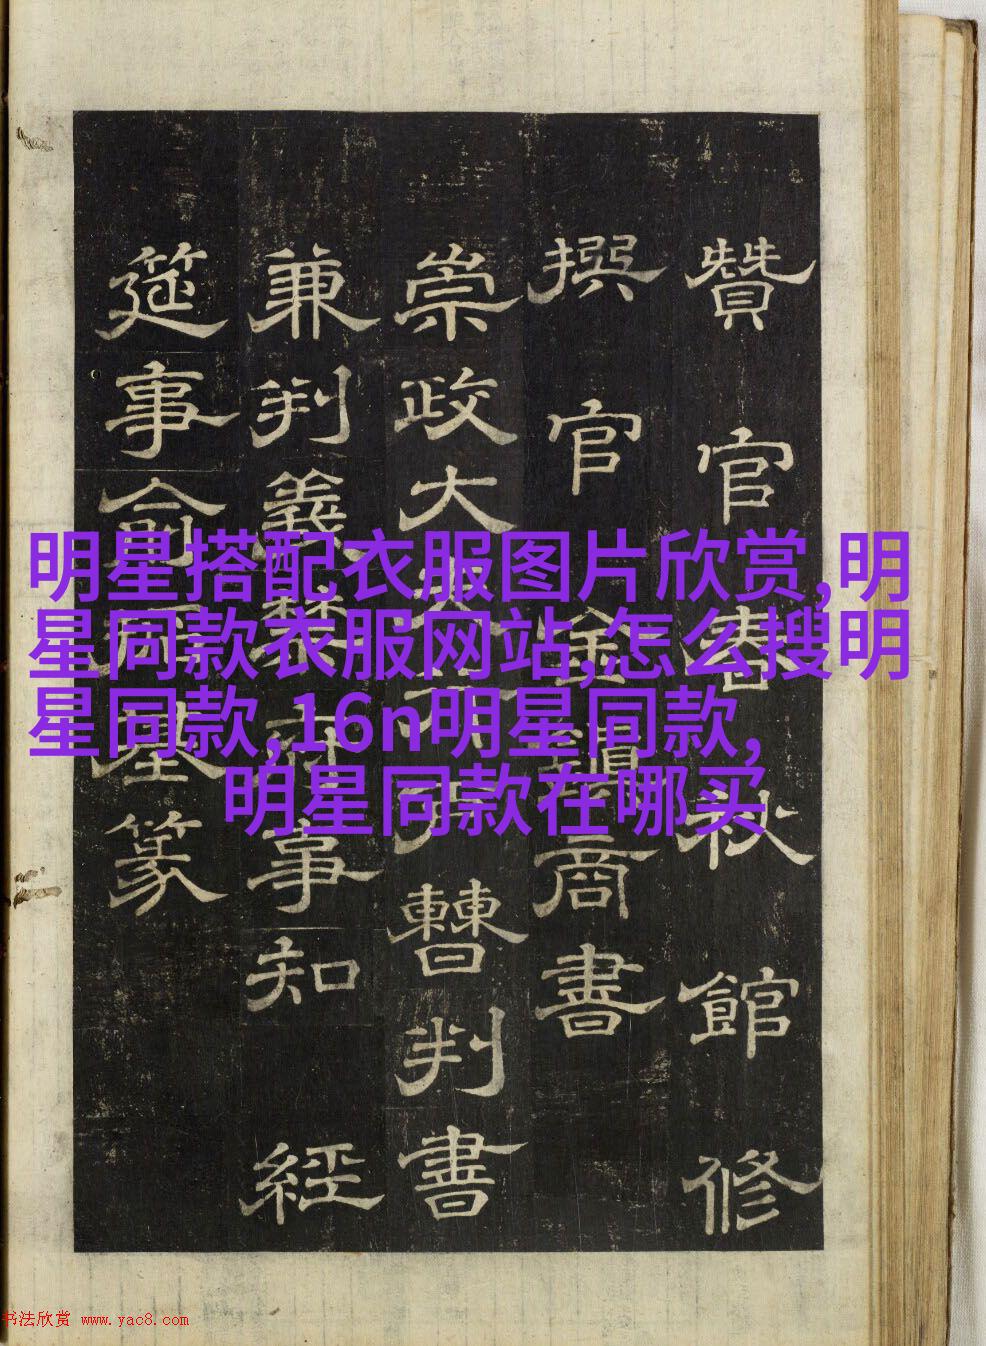 贊官春秋館修
撰官金鎭商書
崇政大夫行兵曹判書
兼判義禁府事知經
筵事俞拓基篆
明星搭配衣服图片欣赏,明
星同款衣服网站,怎么搜明
星同款,16n明星同款,
明星同款在哪买
书法欣赏 www.yac8.com